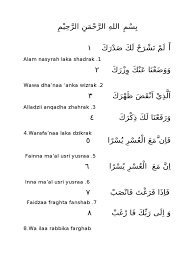 بِسْمِ اللهِ الرَّحْمَنِ الرَّحِيْمِ
أَ لَمْ نَشْرَحْ لَكَ صَدْرَكَ ١
Alam nasyrah laka shadrak .1
وَوَضَعْنَا عَنْكَ وِزْرَكَ ٢
Wawa dha'naa 'anka wizrak .2
الَّذِيْ أَنْقَضَ ظَهْرَكَ ٣
Alladzii anqadha zhahrak .3
وَرَفَعْنَا لَكَ ذِكْرَكَ ٤
4.Warafa'naa laka dzikrak
فَاِنَّ مَعَ الْعُسْرِ يُسْرًا ٥
Fainna ma'al usri yusraa .5
اِنَّ مَعَ الْعُسْرِ يُسْرًا ٦
Inna ma'al usri yusraa .6
فَاِذَا فَرَغْتَ فَانْصَبْ ٧
Faidzaa fraghta fanshab .7
وَ اِلَى رَبِّكَ فَا رْغَبْ ٨
8.Wa ilaa rabbika farghab